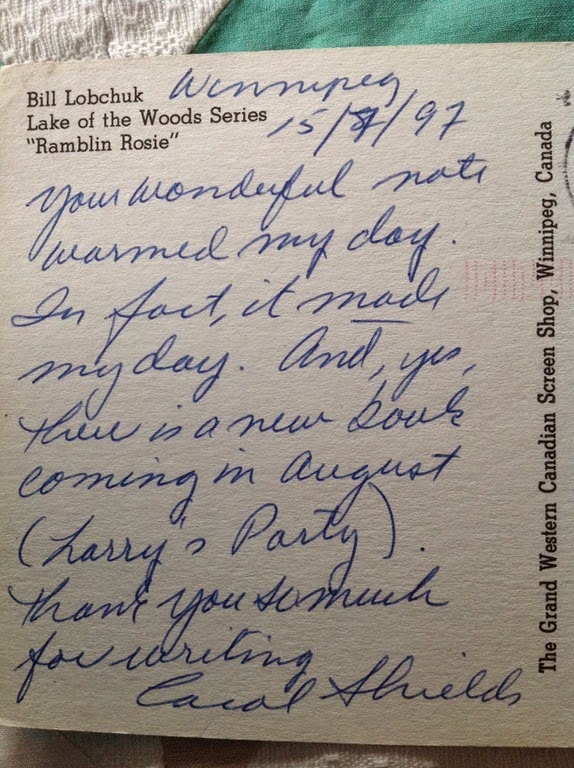 Bill Lobchuk
Lake of the Woods Series
"Ramblin Rosie"
Winnipeg
15/ /97
Your wonderful note
warmed my day.
In fact, it made
my day. And, yes,
there is a new book
coming in August
(Larry's Party).
Thank you so much
for writing
Carol Shields
The Grand Western Canadian Screen Shop, Winnipeg, Canada